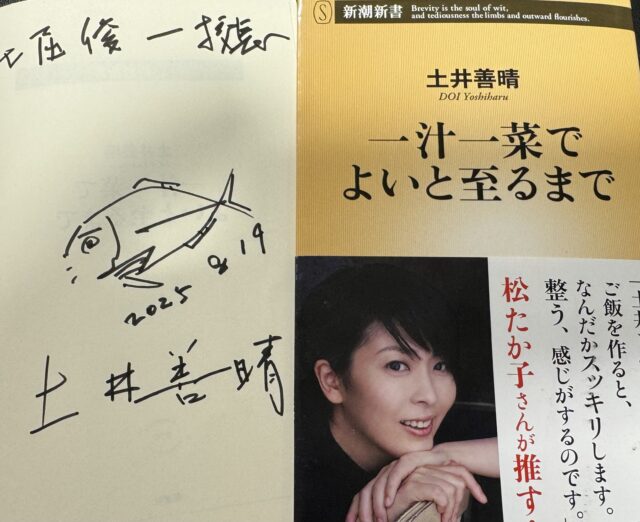 土屋俊一様
2025 8 19
土井善晴
新潮新書
Brevity is the soul of wit,
and tediousness the limbs and outward flourishes.
土井善晴
DOI Yoshiharu
一汁一菜で
よいと至るまで
ご飯を作ると、
なんだかスッキリします。
整う、感じがするのです。
松たか子さんが推す